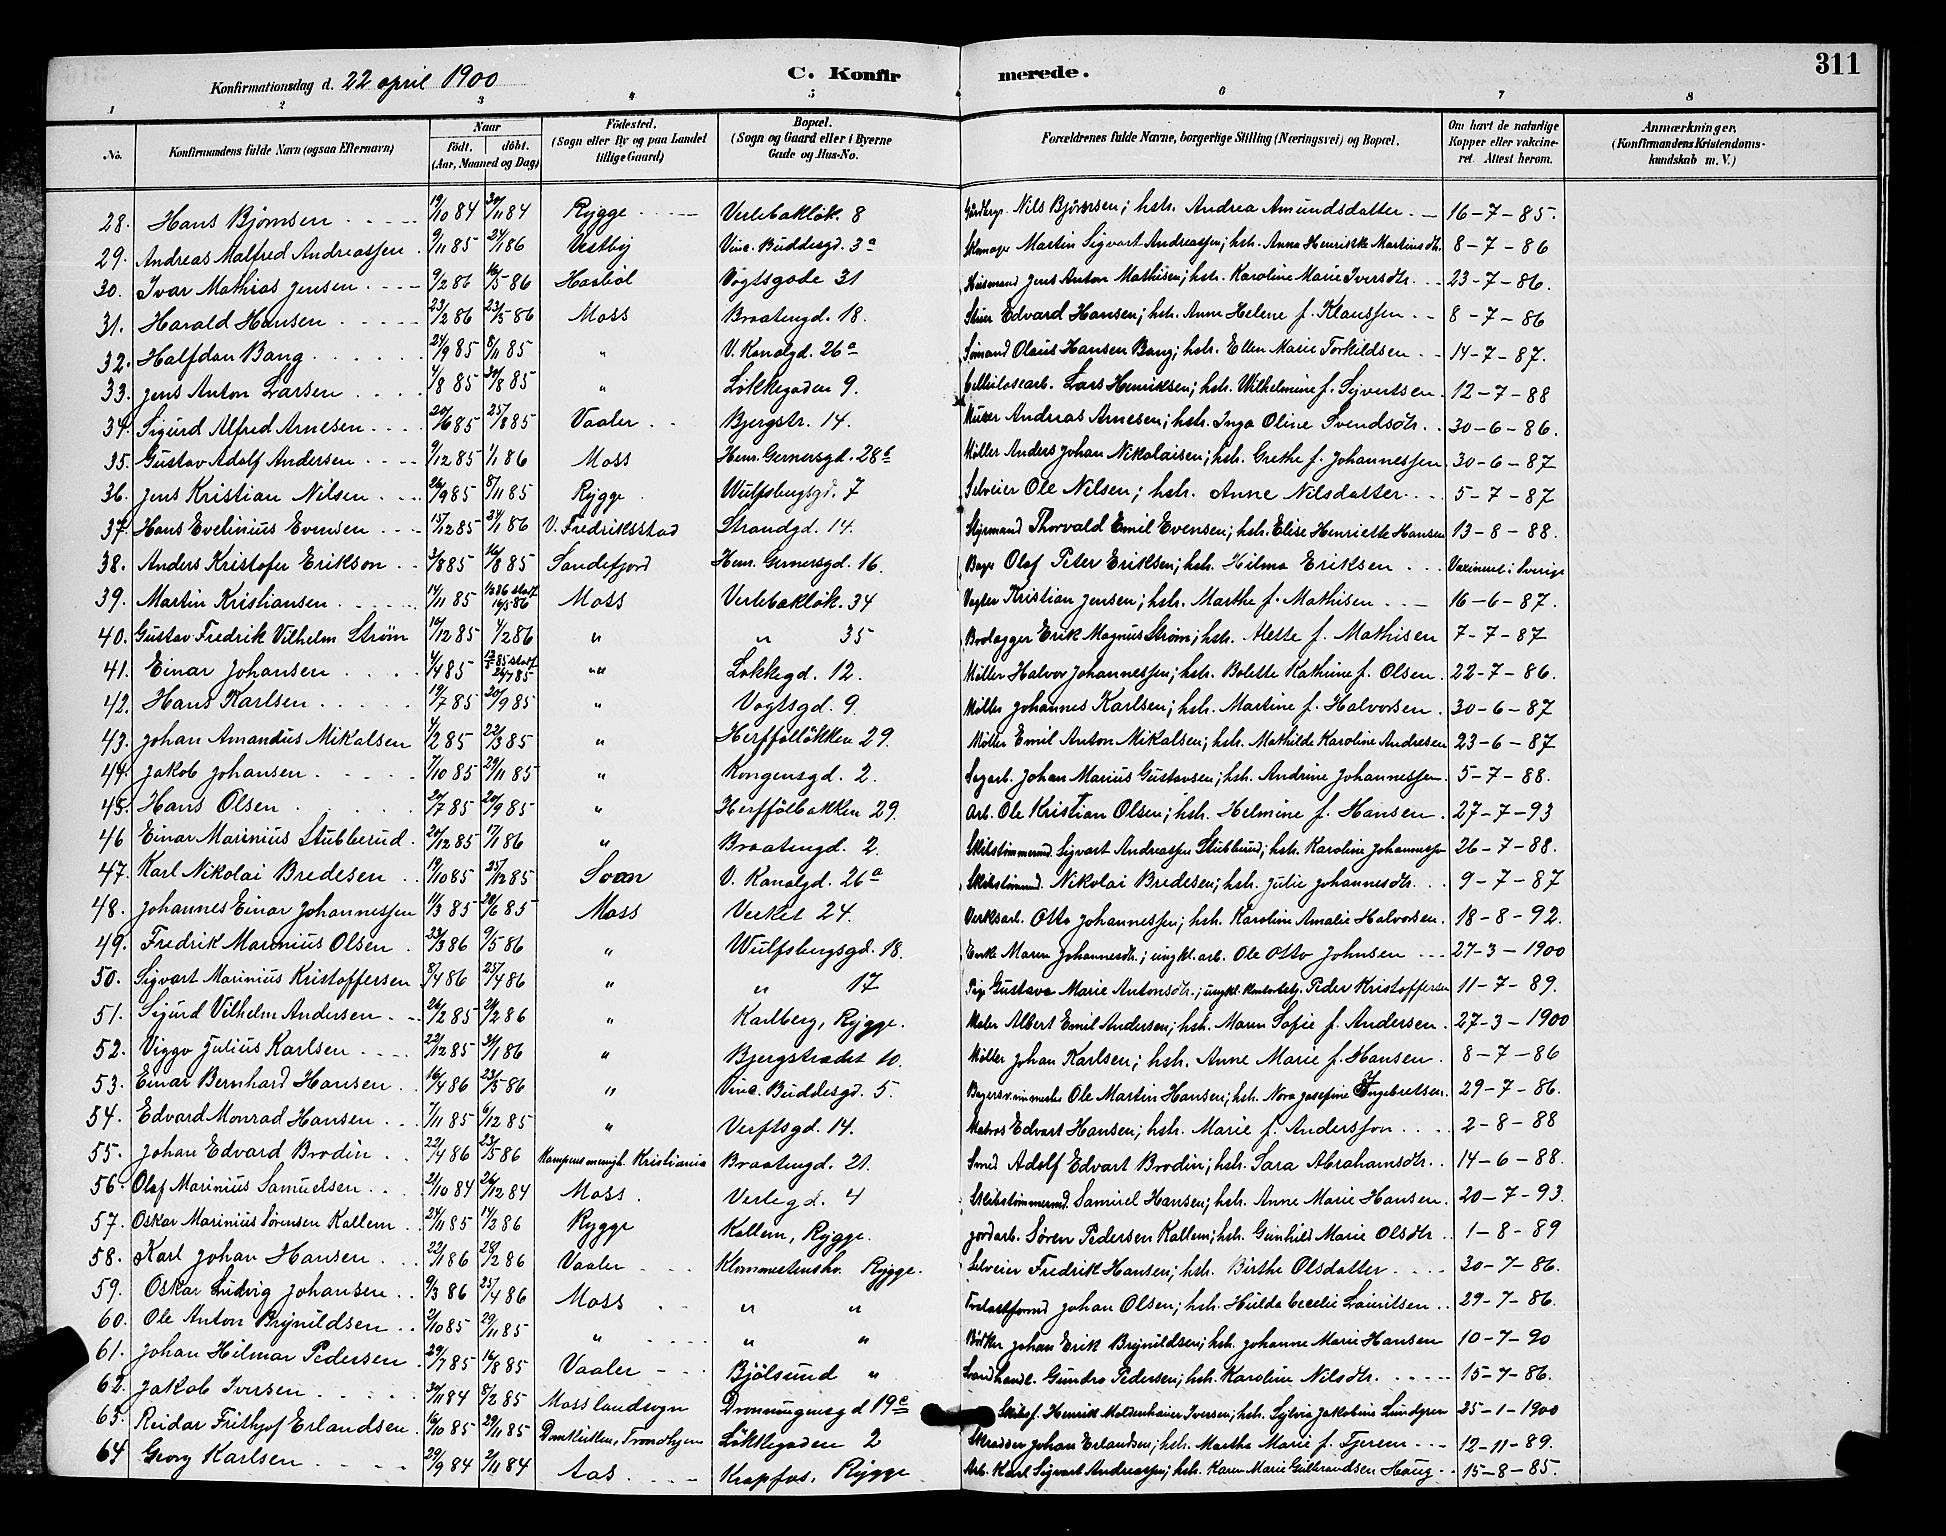 311
Konfirmationsdag d. 22 april 1900 C. Konfirmerede.
1 2 3 4 5 6 7 8
No. Konfirmandens fulde Navn (ogsaa Efternavn) Naar født. døbt. (Aar, Maaned og Dag) Fødested. (Sogn eller By og paa Landet tillige Gaard) Bopæl. (Sogn og Gaard eller i Byerne Gade og Hus-No. Forældrenes fulde Navne, borgerlige Stilling (Næringsvei) og Bopæl. Om havt de naturlige Kopper eller vakcineret. Attest herom. Anmærkninger. (Konfirmandens Kristendomskundskab m. V.)
28. Hans Bjørnsen 19/10 84 30/11 84 Rygge Verlebakløk. 8 Nils Bjørnsen; hstr. Andrea Amundsdatter 16-7-85.
29. Andreas Malfred Andreassen 9/11 85 24/1 86 Vestby Vinc. Buddesgd. 3a Skomager Martin Sigvart Andreassen; hstr. Anna Henrikke Martinsdtr. 8-7-86
30. Ivar Mathias Jensen 9/2 86 16/5 86 Haabøl Vogtsgade 31 Husmand Jens Anton Mathisen; hstr. Karoline Marie Iversdtr. 23-7-86.
31. Harald Hansen 23/2 86 23/5 86 Moss Braatengd. 18. Edvard Hansen; hstr. Anne Helene f. Klaussen 8-7-86
32. Halfdan Bang 24/9 85 8/11 85 " V. Kanalgd. 26a Sømand Olaus Hansen Bang; hstr. Ellen Marie Torkildsen 14-7-87.
33. Jens Anton Larsen 4/8 85 30/8 85 " Løkkegaden 9. Cellulosearb. Lars Henriksen; hstr. Wilhelmine f. Sivertsen 12-7-88
34. Sigurd Alfred Arnesen 20/6 85 25/8 85 Vaaler Bjergstr. 14. Murer Andreas Arnesen; hstr. Inga Oline Svendsdtr. 30-6-86.
35. Gustav Adolf Andersen 9/12 85 1/1 86 Moss Henr. Gernersgd. 28b Møller Anders Johan Nikolaisen; hstr. Grethe f. Johannessen 30-6-87
36. Jens Kristian Nilsen 26/9 85 8/11 85 Rygge Wulfsbergsgd. 7 Selveier Ole Nilsen; hstr. Anne Nilsdatter 5-7-87
37. Hans Evelinius Evensen 15/12 85 24/1 86 V. Fredriksstad Strandgd. 14. Styrmand Thorvald Emil Evensen; hstr. Elise Henriette Hansen 13-8-88.
38. Anders Kristofer Erikson 3/8 85 16/8 85 Sandefjord Henr. Gernersgd. 16. Bager Olof Peter Eriksen; hstr. Hilma Eriksen Vaxineret i Sverige
39. Martin Kristiansen 14/11 85 Moss Verlebakløk. 34 Vegter Kristian Jensen; hstr. Marthe f. Mathisen 16-6-87.
40. Gustav Fredrik Vilhelm Strøm 14/12 85 4/2 86 " " 35 Brolægger Erik Magnus Strøm; hstr. Mette f. Mathisen 7-7-87
41. Einar Johansen 4/4 85 " Løkkegd. 12. Møller Halvor Johannessen; hstr. Bolette Kathrine f. Olsen 22-7-86.
42. Hans Karlsen 19/7 85 20/9 85 " Vogtsgd. 9. Møller Johannes Karlsen; hstr. Martine f. Halvorsen 30-6-87
43. Johan Amandus Mikalsen 4/2 85 22/3 85 " Herfføløkken 29. Møller Emil Anton Mikalsen; hstr. Mathilde Karoline Andresen 23-6-87
44. Jakob Johansen 7/10 85 29/11 85 " Kongensgd. 2. Sagarb. Johan Marius Gustavsen; hstr. Andrine Johannessen 5-7-88.
45. Hans Olsen 2/7 85 20/9 85 " Herffølbakken 29. Arb. Ole Kristian Olsen; hstr. Helmine f. Hansen 27-7-93
46 Einar Marinius Stubberud 20/12 85 17/1 86 " Braatengd. 2. Skibstømmermd. Sigvart Andreassen Stubberud; hstr. Karoline Johannessen 26-7-88.
47. Karl Nikolai Bredesen 19/10 85 25/12 85 Soon V. Kanalgd. 26a Nikolai Bredesen; hstr. Julie Johannesdtr. 9-7-87
48. Johannes Einar Johannessen 11/3 85 28/6 85 Moss Verket 24. Verksarb. Otto Johannessen; hstr. Karoline Amalie Halvorsen. 18-8-92.
49. Fredrik Marinius Olsen 23/3 86 9/5 86 " Wulfsbergsgd. 18. Enke Maren Johannesdtr.; ungkl. arb. Ole Otto Johnsen 27-3-1900
50. Sigvart Marinius Kristoffersen 8/4 86 25/4 86 " " 17 Pige Gustava Marie Antonsdtr.; ungkl. Peder Kristoffersen 11-7-89.
51. Sigurd Vilhelm Andersen 26/2 85 21/2 86 " Karlberg, Rygge. Maler Albert Emil Andersen; hstr. Maren Sofie f. Andersen 27-3-1900
52. Viggo Julius Karlsen 22/12 85 31/1 86 " Bjergstrædet 10. Møller Johan Karlsen; hstr. Anne Marie f. Hansen 8-7-86
53. Einar Bernhard Hansen 16/4 86 23/5 86 " Vinc. Buddesgd. 5. Ole Martin Hansen; hstr. Nora Josefine Ingebretsen. 29-7-86.
54. Edvard Monrad Hansen 7/11 85 6/12 85 " Verftsgd. 14. Matros Edvart Hansen; hstr. Marie f. Andersson 2-8-88
55. Johan Edvard Brodin 22/4 86 23/5 86 Kampens menigh. Kristiania Braatengd. 21. Smed Adolf Edvart Brodin; hstr. Sara Abrahamsdtr. 14-6-88.
56. Olaf Marinius Samuelsen 21/10 84 26/12 84 Moss. Verlegd. 4 Skibstømmermd. Samuel Hansen; hstr. Anne Marie Hansen 20-7-93.
57. Oskar Marinius Sørensen Kallem 24/11 85 14/2 86 Rygge Kallem, Rygge. Jordarb. Søren Pedersen Kallem; hstr. Gunhild Marie Olsdtr. 1-8-89
58. Karl Johan Hansen 22/1 86 28/2 86 Vaaler Rygge. Selveier Fredrik Hansen; hstr. Birthe Olsdatter 30-7-86.
59. Oskar Ludvig Johansen 9/3 86 25/4 86 Moss " " Johan Olsen; hstr. Hulda Cecelie Lauritsen 29-7-86.
60. Ole Anton Brynildsen 2/10 85 29/11 85 " " " Bødker Johan Erik Brynildsen; hstr. Johanne Marie Hansen 10-7-90
61. Johan Hilmar Pedersen 29/7 85 16/8 85 Vaaler Bjølsund " Landhandl. Gundro Pedersen; hstr. Karoline Nilsdtr. 15-7-86.
62. Jakob Iversen 30/11 84 8/2 85 Moss landsogn Dronningensgd 19c Skibsf. Henrik Moldenhauer Iversen; hstr. Sylvia Jakobine Lundgren 25-1-1900
63. Reidar Frithjof Erlandsen 16/10 85 29/11 85 Domkirken, Trondhjem Løkkegaden 2 Skrædder Johan Erlandsen; hstr. Martha Marie f. Tjerem 12-11-89.
64 Georg Karlsen 29/9 84 2/11 84 Aas. Krapfos, Rygge Arb. Karl Sigvart Andreassen; hstr. Karen Marie Gulbrandsen Haug 15-8-85.